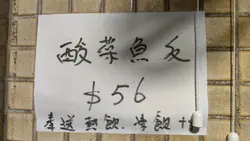 酸菜魚反
$56
奉送熱飲.冷飲+